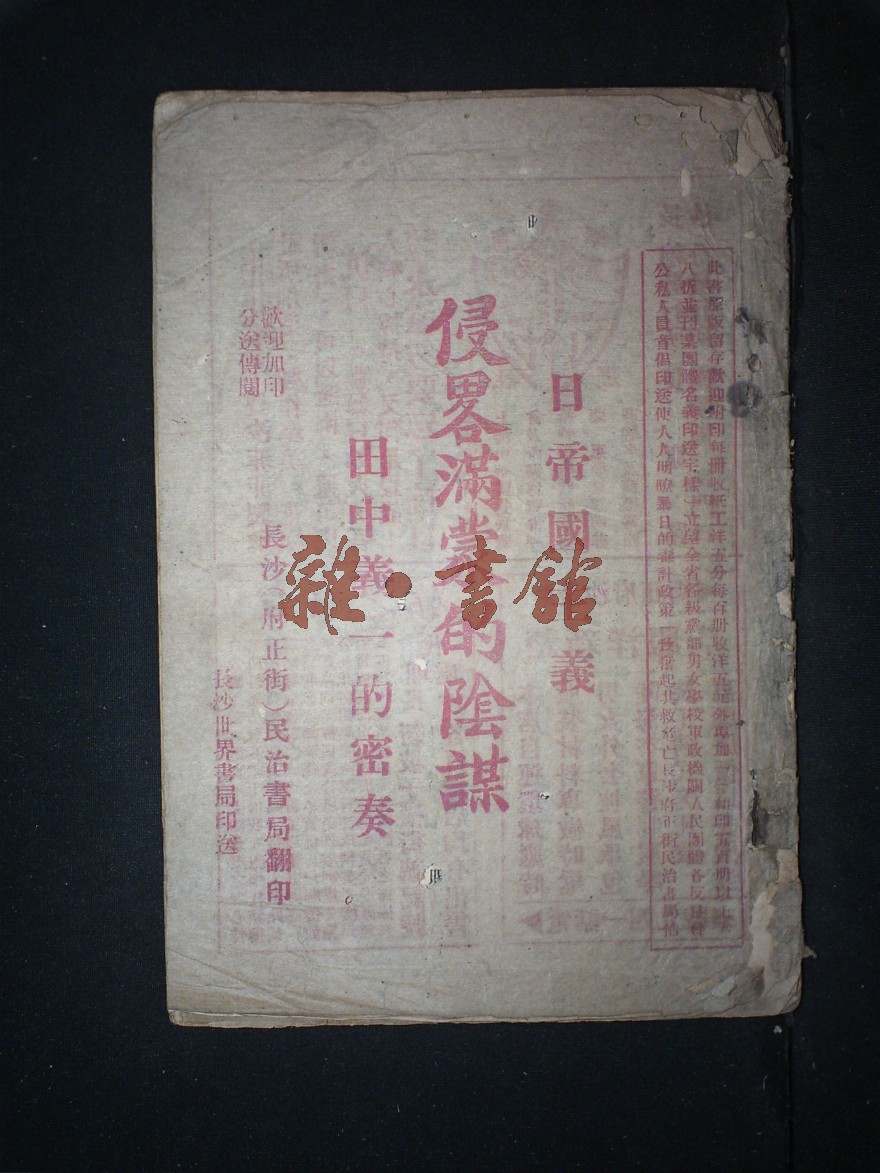 此書原版留存歡迎附印每冊收紙工洋五分每百冊收洋五元外埠加
八折並刊某團體名義印送字樣
全省各級黨部男女學校軍政機關人民團體各反日會
公私人員首倡印送使人人明瞭暴日的毒計政策一致奮起共救危亡長沙府正街民治書局
日帝國主義
侵畧滿蒙的陰謀
田中義一的密奏
長沙(府正街)民治書局翻印
歡迎加印
分送傳閱
長沙世界書局印送
雜·書館